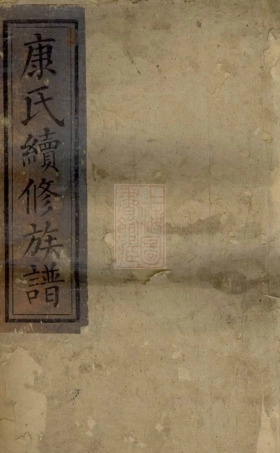 康氏續修族譜